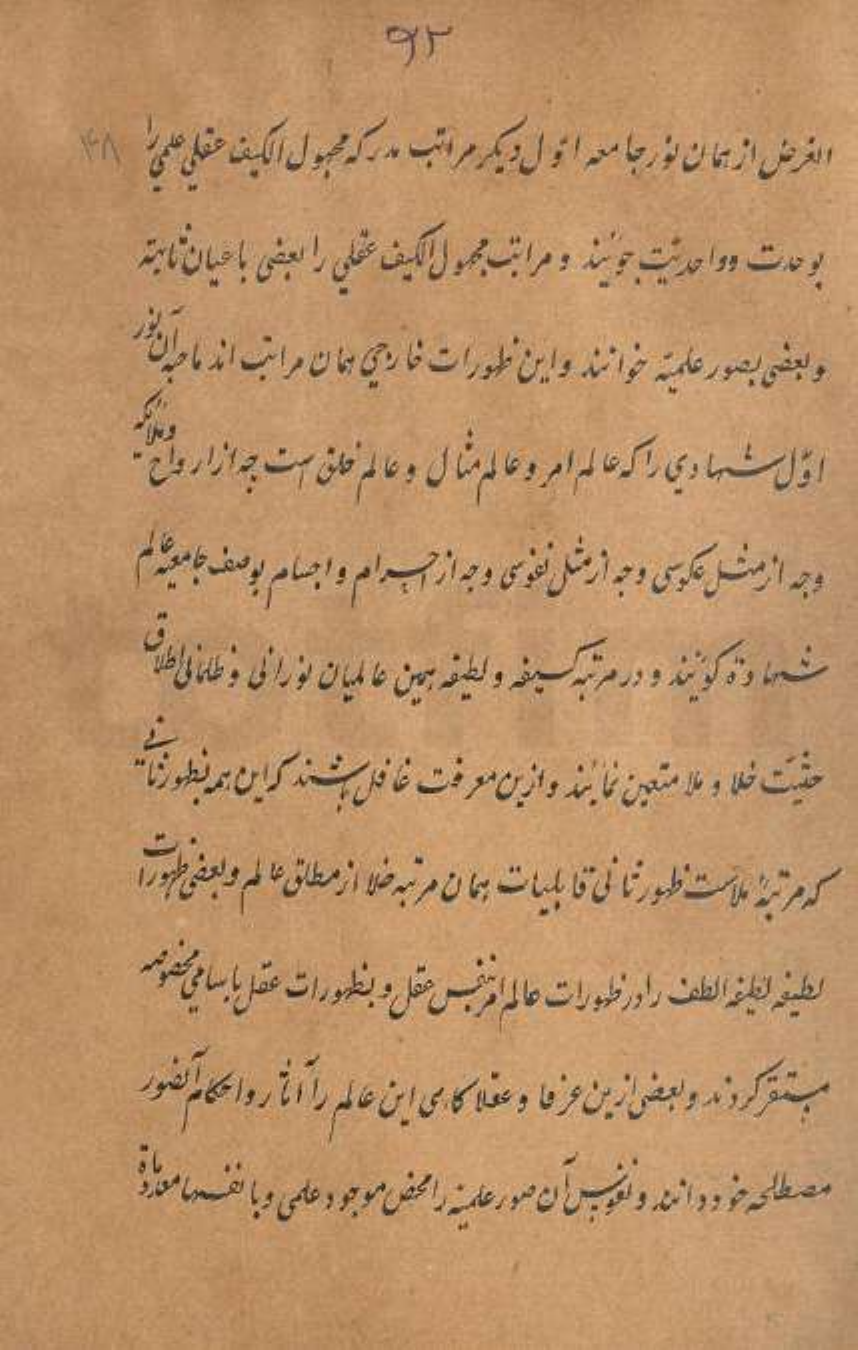 ۹۲
۴۸
الغرض از همان نور جامعه اول دیکر مراتب مدرکه مجهول الکیف عقلي علمي را
بوحدت وواحدیت جویند و مراتب مجهول الکیف عقلي را بعضی باعیان ثابته
وبعضی بصور علمیّه خوانند واین ظهورات خارجي همان مراتب اند آن نور
اوّل شهادي را که عالم امر وعالم مثال و عالم خلق است چه از ارواح وملائکه
وچه از مثل عکوسی وچه از مثل نفوسی وچه از اجرام واجسام بوصف جامعیّه عالم
شهادة کویند و در مرتبه کسیفه ولطیفه همین عالمیان نورانی وظلمانی اطلاق
حثیّت خلا و ملا متعین نمایند وازین معرفت غافل باشند که این همه بظهور ثانے
که مرتبهٔ ملاست ظهور ثانی قابلیات همان مرتبه خلا از مطلق عالم وبعضی ظهورات
لطیفه لطیفه الطف را در ظهورات عالم امر بنفس عقل و بظهورات عقل باسامي مخصوصه
مستقر کردند وبعضی ازین عرفا و عقلا کاهی این عالم را آثار واحکام آنصور
مصطلحه خود دانند ونفوس آن صور علمیّه را محض موجود علمی وبانفسها